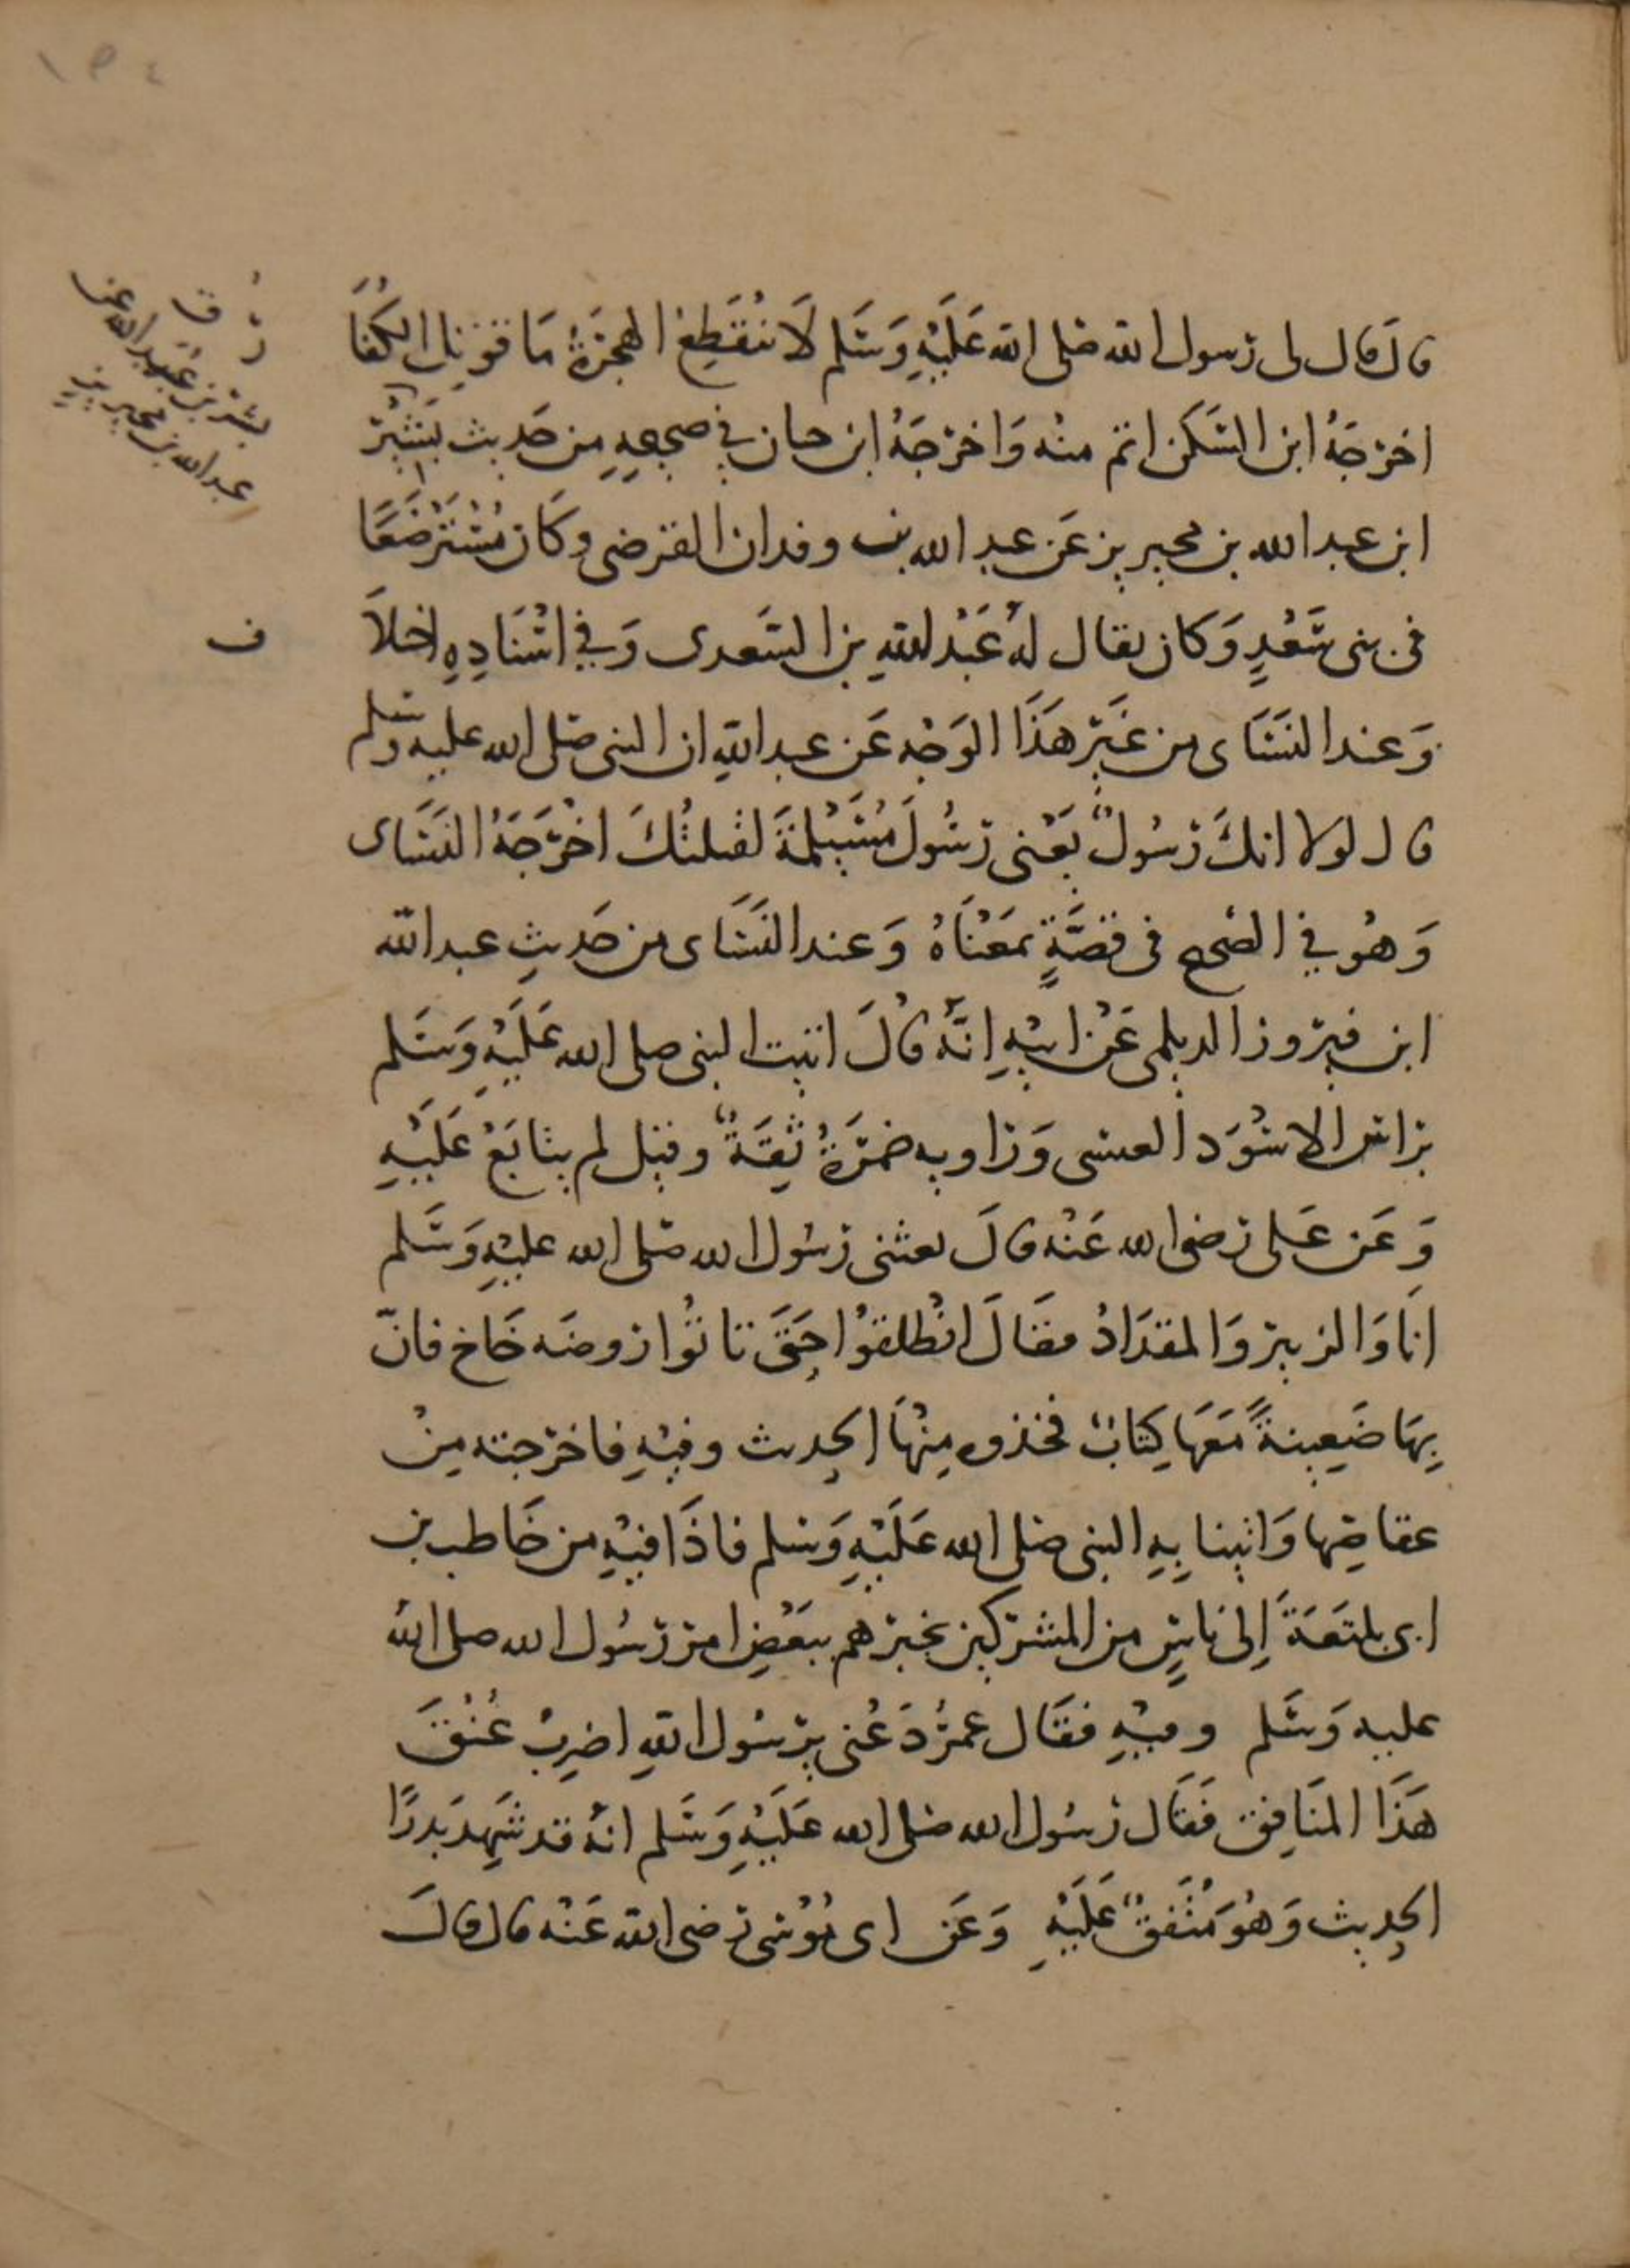 ١٥٤
قال قال لى رسول الله صلى الله عَلَيْهِ وَسَلم لَا تنْقَطِع الهِجرَةُ مَا قوتل الكُفا
اخرَجَهُ ابن السَّكن اتم منه وَاخرَجَهُ ابن حبان فِي صحيحِهِ مِن حَديث بُسْر
ابن عبد الله بن محيريز عَن عبد الله بن وقدان القرضى وكَان مُسْتَرْضَعًا
فى بنى سَعْدٍ وَكان يقال لهُ عَبْد اللهِ بن السَّعدى وَفِي اسْنَادِهِ اختلا
ف
وَعند النسَاى من غَيْر هَذَا الوَجْه عَن عبد اللهِ ان النبى صلى الله عليه وسلم
قال لولا انكَ رَسُولٌ يَعْنى رَسُولَ مُسَيْلمَةَ لقتلتُكَ اخْرَجَهُ النسَاى
وَهُو فِي الصَّحيح فى قصَّةٍ بمَعْنَاهُ وَعند النسَاى من حَديثِ عبد الله
ابن فيرُوز الديلمى عَنْ ابيْهِ انَّهُ قالَ اتيت النبى صلى الله عَلَيْهِ وَسَلم
براس الاسْوَد العنسى وَراويه ضمرَةُ ثِقَةٌ وقيل لم يتابَعْ عَلَيْهِ
وَعَن عَلى رضى الله عَنْه قالَ بعثنى رسُول الله صَلى الله عليْهِ وَسَلم
انَا وَالزبير وَالمقدَادُ فقَالَ انْطلقُوا حَتى تاتُوا روضَه خَاخ فانّ
بِهَا ضَعِينةً مَعَهَا كِتابٌ فخذوه مِنْهَا الحديث وفيْهِ فاخرجته مِنْ
عقاصِها وَاتينا بِهِ النبى صلى الله عَلَيْهِ وَسَلم فاذَا فيْهِ من حَاطب بن
ابى بلتعَةَ إِلى نَاسٍ من المشركين يخبرهم ببَعْضِ امر رَسُول الله صلى الله
عليه وَسَلم وفيْهِ فقَال عمرُ دَعْنى يرسُول اللهِ اضرِبْ عُنُقَ
هَذَا المنَافِق فَقَال رسُول الله صلى الله عَلَيْهِ وَسَلم انهُ قد شَهِد بَدرًا
الحديث وَهُوَ مُتفقٌ عَلَيْهِ وَعَن ابى مُوْسَى رضى الله عَنْه قال قالَ
رُ ق
بسر بن عبيد الله عن
عبد الله بن محيريز